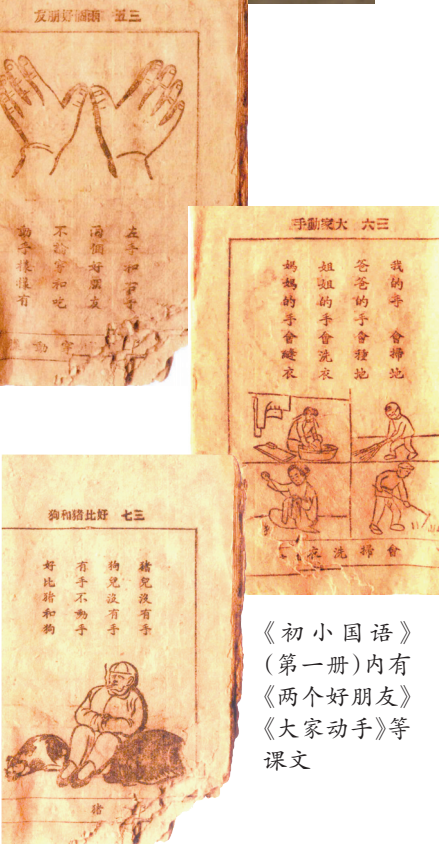 三五 兩個好朋友
左手和右手
兩個好朋友
不論穿和吃
動手樣樣有
穿動
三六 大家動手
我的手 會掃地
爸爸的手會種地
姐姐的手會洗衣
媽媽的手會縫衣
會掃洗衣
三七 好比豬和狗
豬兒沒有手
狗兒沒有手
有手不動手
好比豬和狗
豬
《初小国语》
(第一册)内有
《两个好朋友》
《大家动手》等
课文